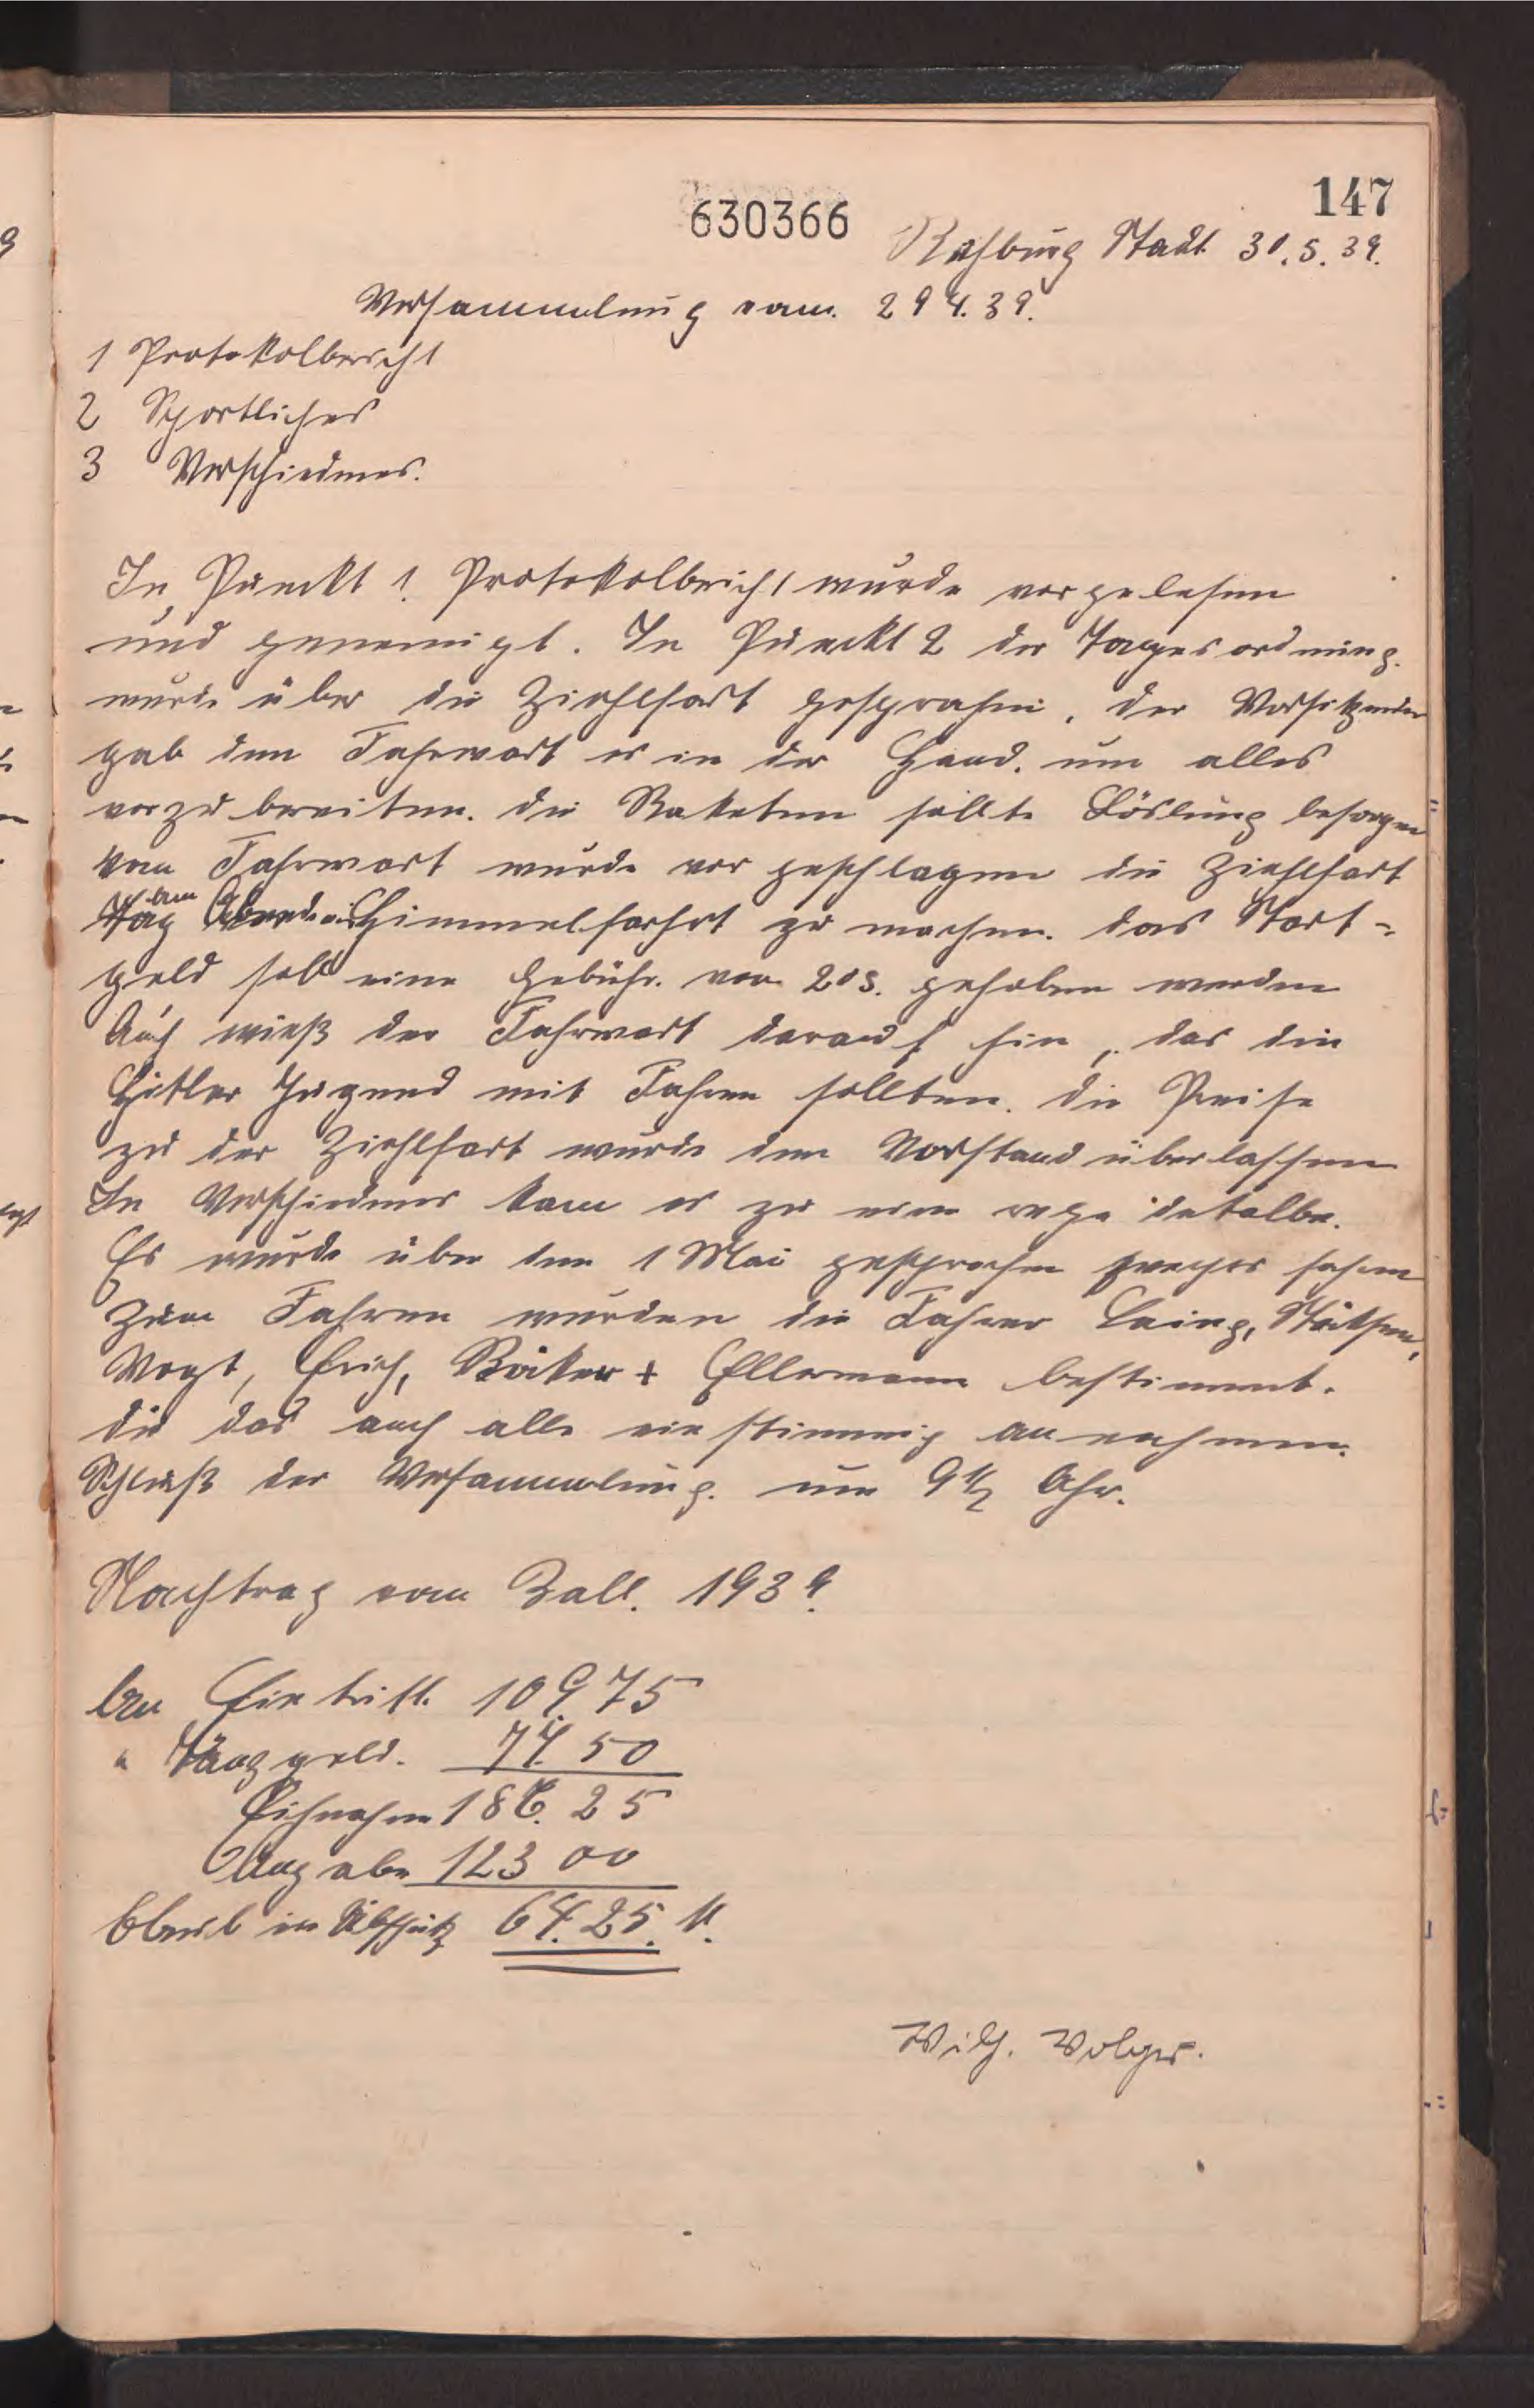 147
630366
Rehburg Stadt 30.5.39.
Versammlung vom. 29 4. 39.
1 Protokolbericht
2 Sportliches
3 Verschiednes.
In Punckt 1. Protokolbericht wurde vorgelesen
und genemigt. In Punckt 2 der Tagesordnung.
wurde über die Ziehlfart gesprochen. der Vorsitzender
gab den Fahrwart es in der Hand. um alles
vorzubereiten. die Raketen sollte besorgen
vom Fahrwart wurde vor geschlagen die Ziehlfart
am
Tag Himmelfarhrt zu machen. das Start-
geld soll eine Gebühr. von 20 S. gehoben werden
Auch wieß der Fahrwart darauf hin, das die
Hitler Jugend mit Fahren sollten. die Preise
zu der Ziehlfart wurde den Vorstand überlassen
In Verschiednes kam es zu eine rege
Es wurde über den 1 Mai gesprochen fahren
Zum Fahren wurden die Fahrer
Vogt, Erich, Böker + Ellermann bestimmt.
die das auch alle einstimmig annehmen.
Schluß der Versammlung. um 9 1/2 Uhr.
Nachtrag vom Ball. 1939.
An Eintritt. 109.75
" Tanzgeld. 77. 50
186. 25
Ausgabe 123 00
64. 25. M.
Wilh. Wolger.